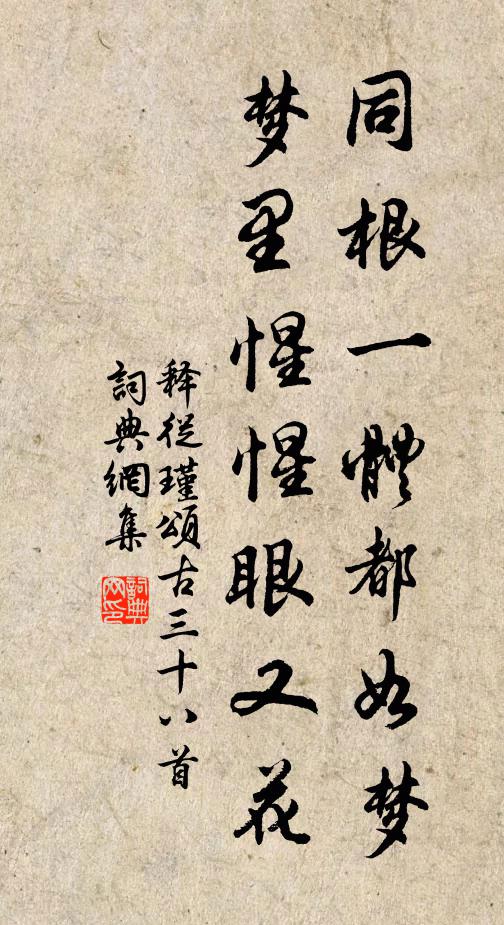 同根一體都如梦
梦里惺惺眼又花
释從瑾頌古三十八首
詞典網集
詞典网印